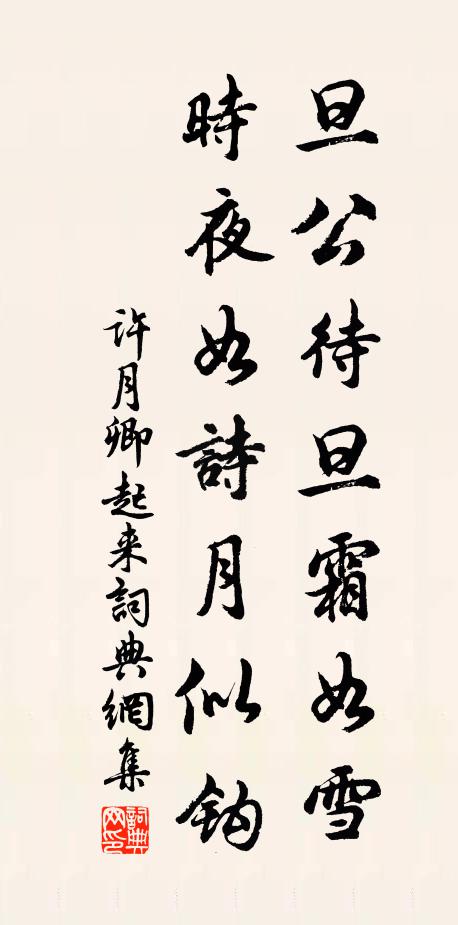 旦公待旦霜如雪
時夜如詩月似鈎
許月卿起来詞典網集
詞典網印